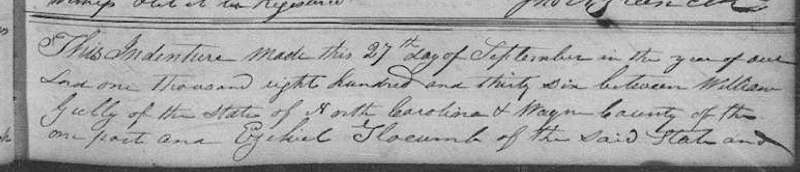 let it be Registered
This Indenture made this 27th day of September in the year of our
Lord one thousand eight hundred and thirty six between William
Gully of the State of North Carolina & Wayn County of the
one part and Ezekiel Slocumb of the said State and